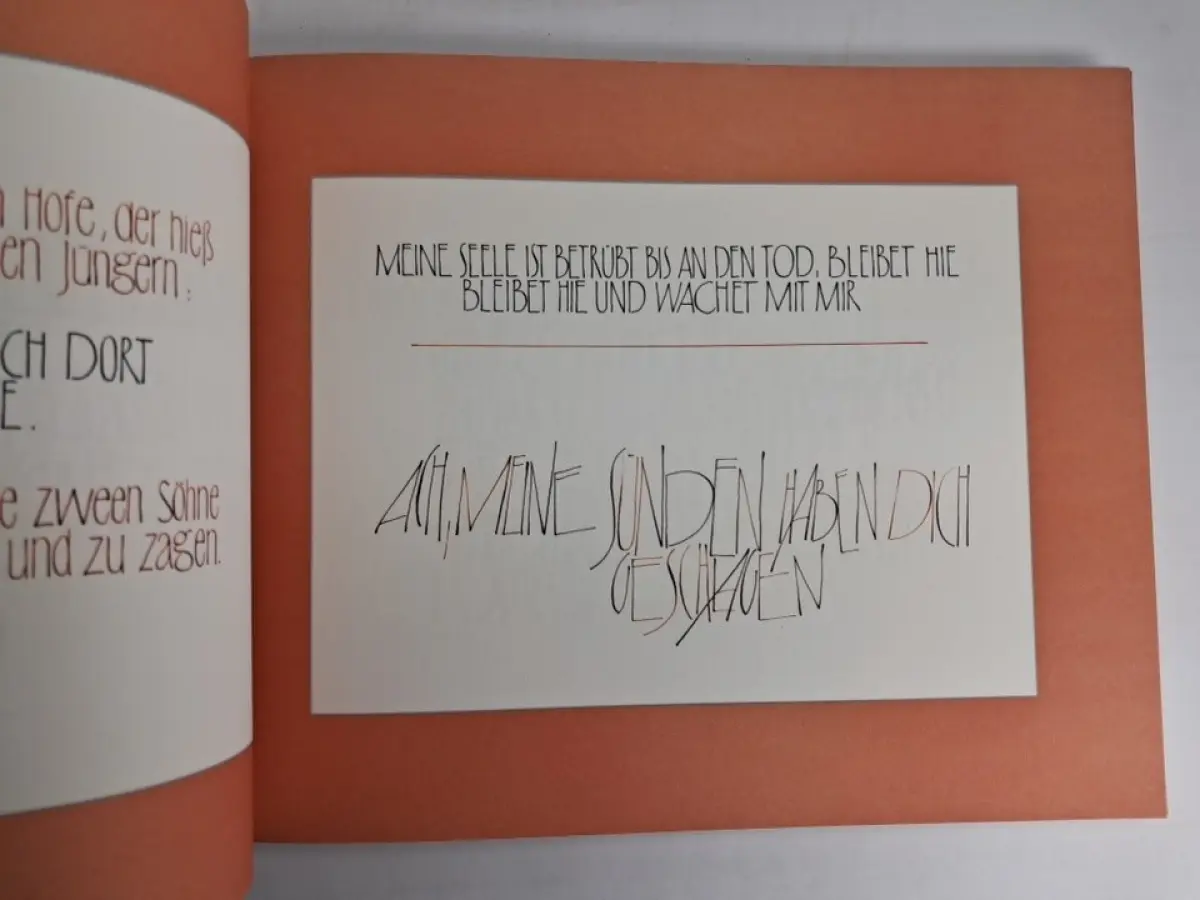 Hofe, der hieß
en Jüngern:
CH DORT
E.
e zween Söhne
und zu zagen.
MEINE SEELE IST BETRÜBT BIS AN DEN TOD. BLEIBET HIE
BLEIBET HIE UND WACHET MIT MIR
ACH, MEINE SÜNDEN HABEN DICH
GESCHLAGEN